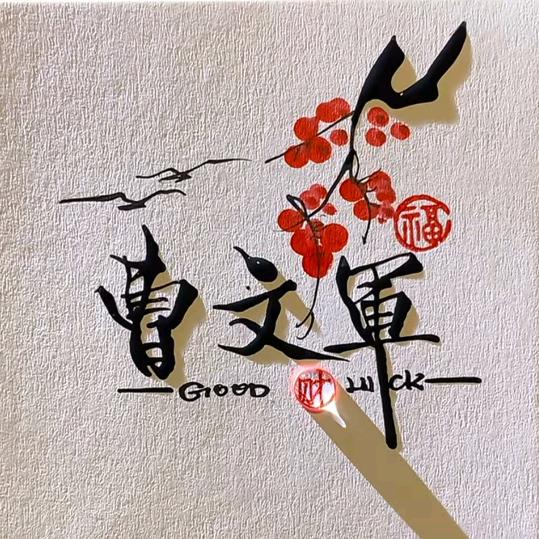 福
曹文軍
GOOD 财 LUCK